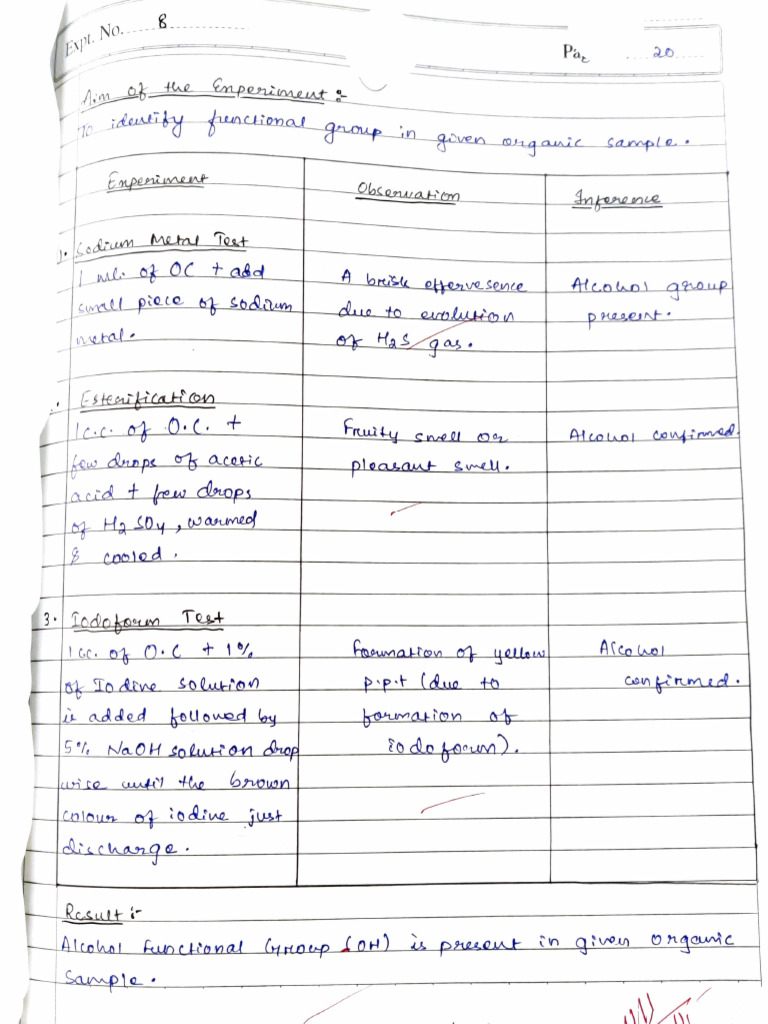 Expt. No. 8
Pa 20
Aim of the Experiment :-
To identify functional group in given organic sample.
Experiment
Observation
Inference
1. Sodium Metal Test
1 ml. of OC + add
small piece of sodium
metal.
A brisk effervesence
due to evolution
of H2S gas.
Alcohol group
present.
Esterification
1 c.c. of O.C. +
few drops of acetic
acid + few drops
of H2SO4, warmed
& cooled.
Fruity smell or
pleasant smell.
Alcohol confirmed.
3. Iodoform Test
1 cc. of O.C + 1%
of Iodine solution
is added followed by
5% NaOH solution drop
wise until the brown
colour of iodine just
discharge.
Formation of yellow
p.p.t (due to
formation of
iodoform).
Alcohol
confirmed.
Result :-
Alcohol Functional Group (OH) is present in given organic
sample.